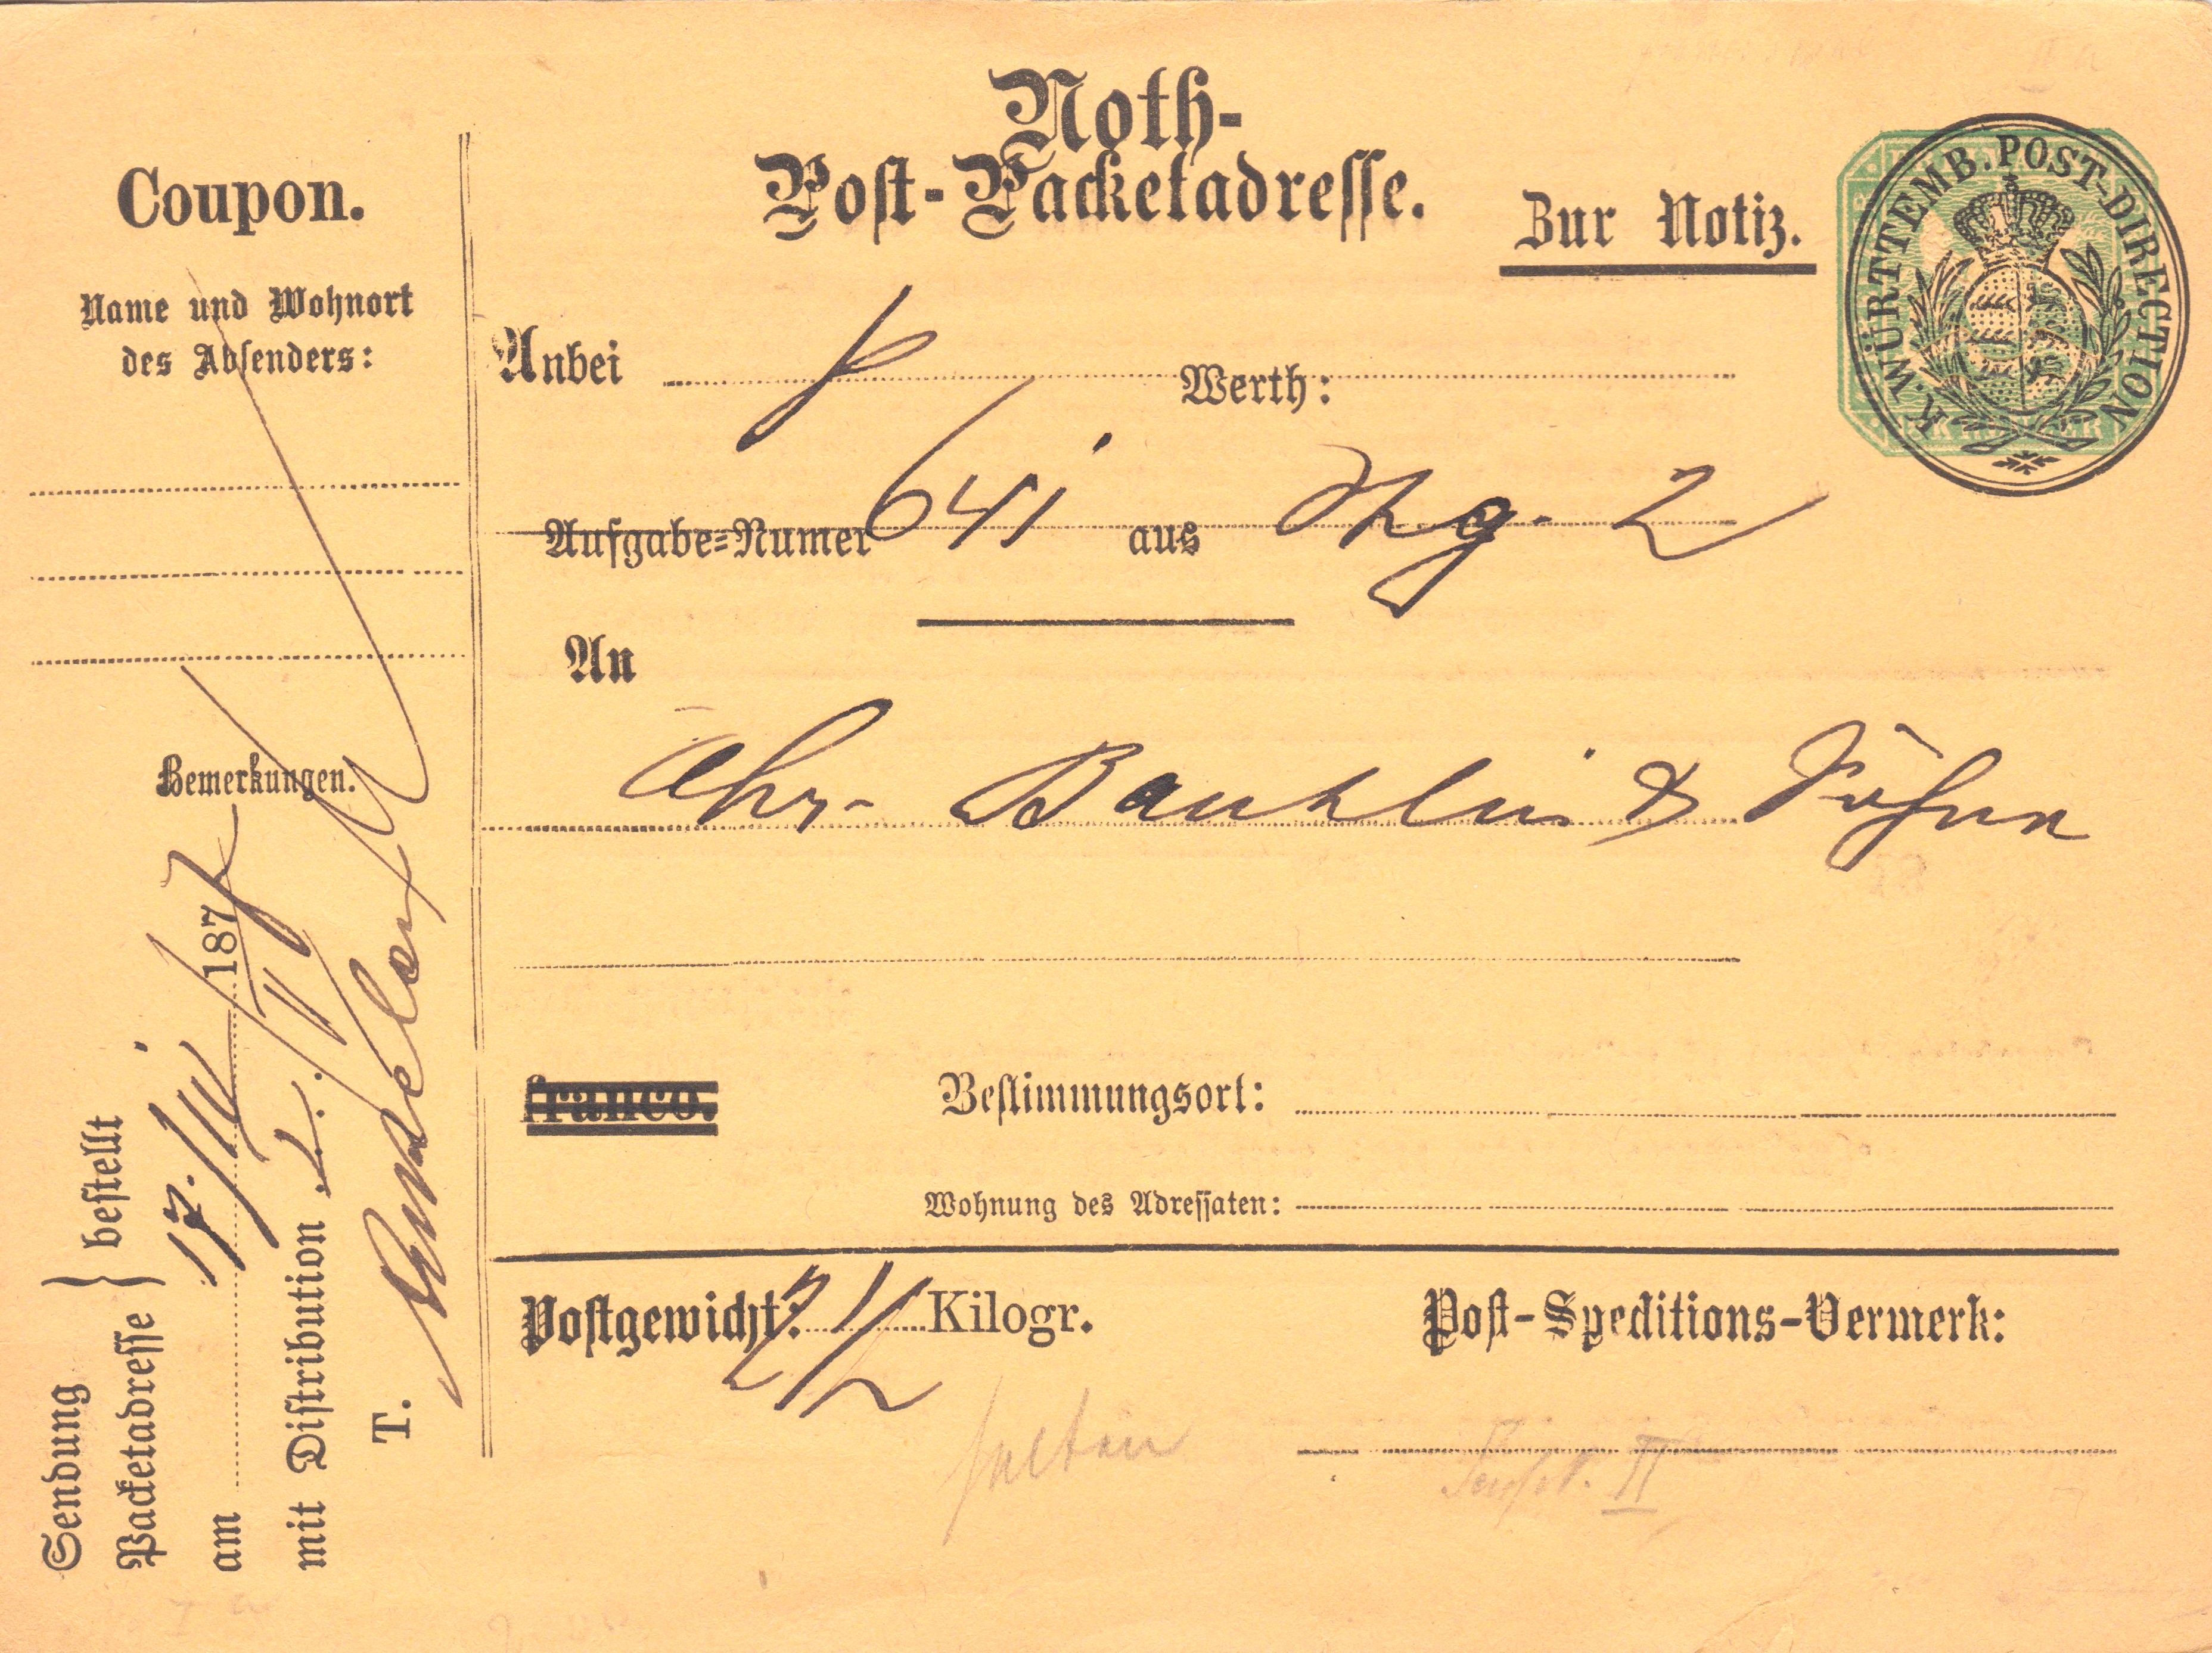 Noth-
Post-Packetadresse.
Zur Notiz.
K. WÜRTTEMB. POST-DIRECTION
Coupon.
Name und Wohnort
des Absenders:
Bemerkungen.
Anbei Werth:
Aufgabe-Numer 641 aus
An
Chr. & Söhne
franco.
Bestimmungsort:
Wohnung des Adressaten:
Postgewicht: 2 1/2 Kilogr.
Post-Speditions-Vermerk:
Sendung
Packetadresse } bestellt
am 17./III 187
mit Distribution
T.